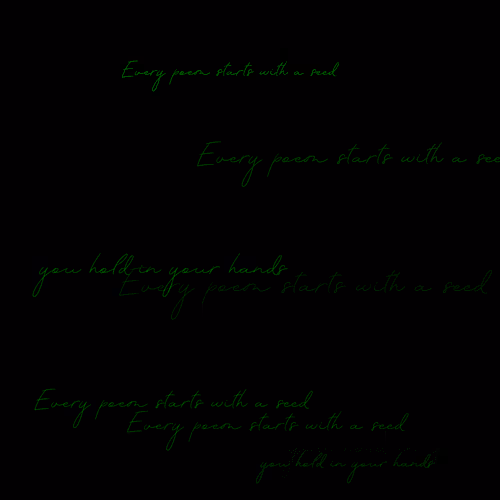 Every poem starts with a seed
Every poem starts with a see
you hold in your hands
Every poem starts with a seed
Every poem starts with a seed
Every poem starts with a seed
you hold in your hands